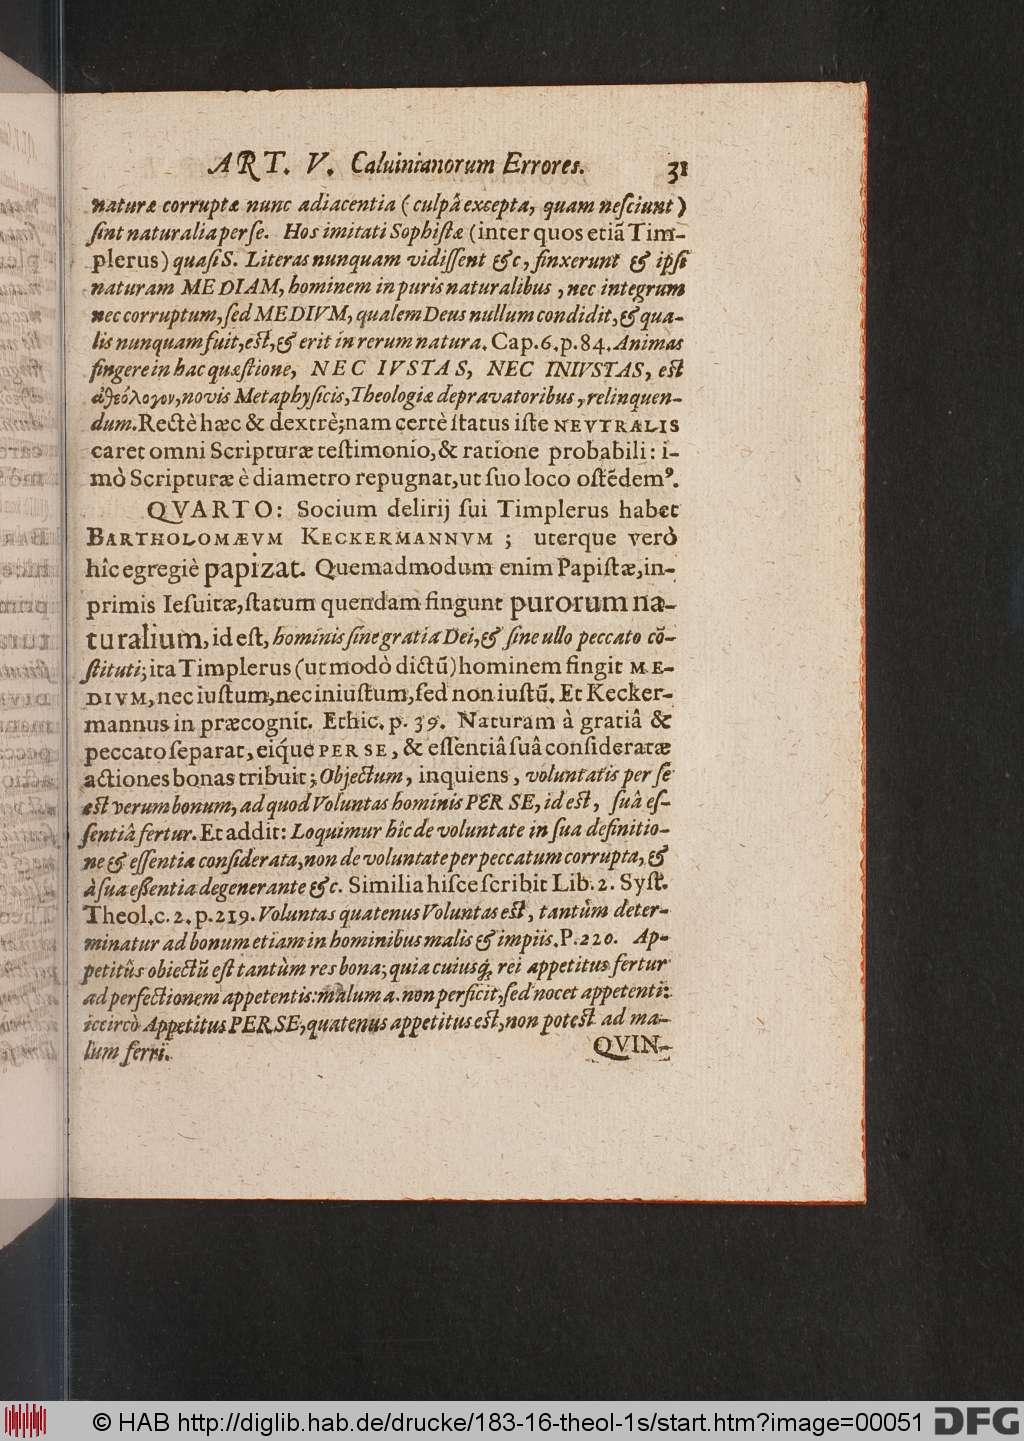 ART. V. Caluinianorum Errores. 31
naturæ corruptæ nunc adiacentia (culpâ excepta, quam neſciunt)
ſint naturalia per ſe. Hos imitati Sophiſtæ (inter quos etiã Tim-
plerus) quaſi S. Literas nunquam vidiſſent &c, finxerunt & ipſi
naturam MEDIAM, hominem in puris naturalibus, nec integrum
nec corruptum, ſed MEDIVM, qualem Deus nullum condidit, & qua-
lis nunquam fuit, eſt, & erit in rerum natura. Cap. 6. p. 84. Animas
fingere in hac quæſtione, NEC IVSTAS, NEC INIVSTAS, eſt
ἀθεόλογον, novis Metaphyſicis, Theologiæ depravatoribus, relinquen-
dum. Rectè hæc & dextrè; nam certè ſtatus iſte NEVTRALIS
caret omni Scripturæ teſtimonio, & ratione probabili: i-
mò Scripturæ è diametro repugnat, ut ſuo loco oſtẽdemꝰ.
QVARTO: Socium delirij ſui Timplerus habet
BARTHOLOMÆVM KECKERMANNVM; uterque verò
hîc egregiè papizat. Quemadmodum enim Papiſtæ, in-
primis Ieſuitæ, ſtatum quendam fingunt purorum na-
turalium, id eſt, hominis ſine gratia Dei, & ſine ullo peccato cõ-
ſtituti; ita Timplerus (ut modò dictũ) hominem fingit ME-
DIVM, nec iuſtum, nec iniuſtum, ſed non iuſtũ. Et Kecker-
mannus in præcognit. Ethic. p. 39. Naturam à gratiâ &
peccato ſeparat, eiq́ue PER SE, & eſſentiâ ſuâ conſideratæ
actiones bonas tribuit; Objectum, inquiens, voluntatis per ſe
eſt verum bonum, ad quod Voluntas hominis PER SE, id eſt, ſuâ eſ-
ſentiâ fertur. Et addit: Loquimur hîc de voluntate in ſua definitio-
ne & eſſentia conſiderata, non de voluntate per peccatum corrupta, &
à ſua eſſentia degenerante &c. Similia hiſce ſcribit Lib. 2. Syſt.
Theol. c. 2. p. 219. Voluntas quatenus Voluntas eſt, tantùm deter-
minatur ad bonum etiam in hominibus malis & impiis. P. 220. Ap-
petitûs obiectũ eſt tantùm res bona; quia cuiusq́; rei appetitus fertur
ad perfectionem appetentis: malum a. non perficit, ſed nocet appetenti:
iccircò Appetitus PER SE, quatenus appetitus eſt, non poteſt ad ma-
lum ferri.
QVIN-
© HAB http://diglib.hab.de/drucke/183-16-theol-1s/start.htm?image=00051 DFG